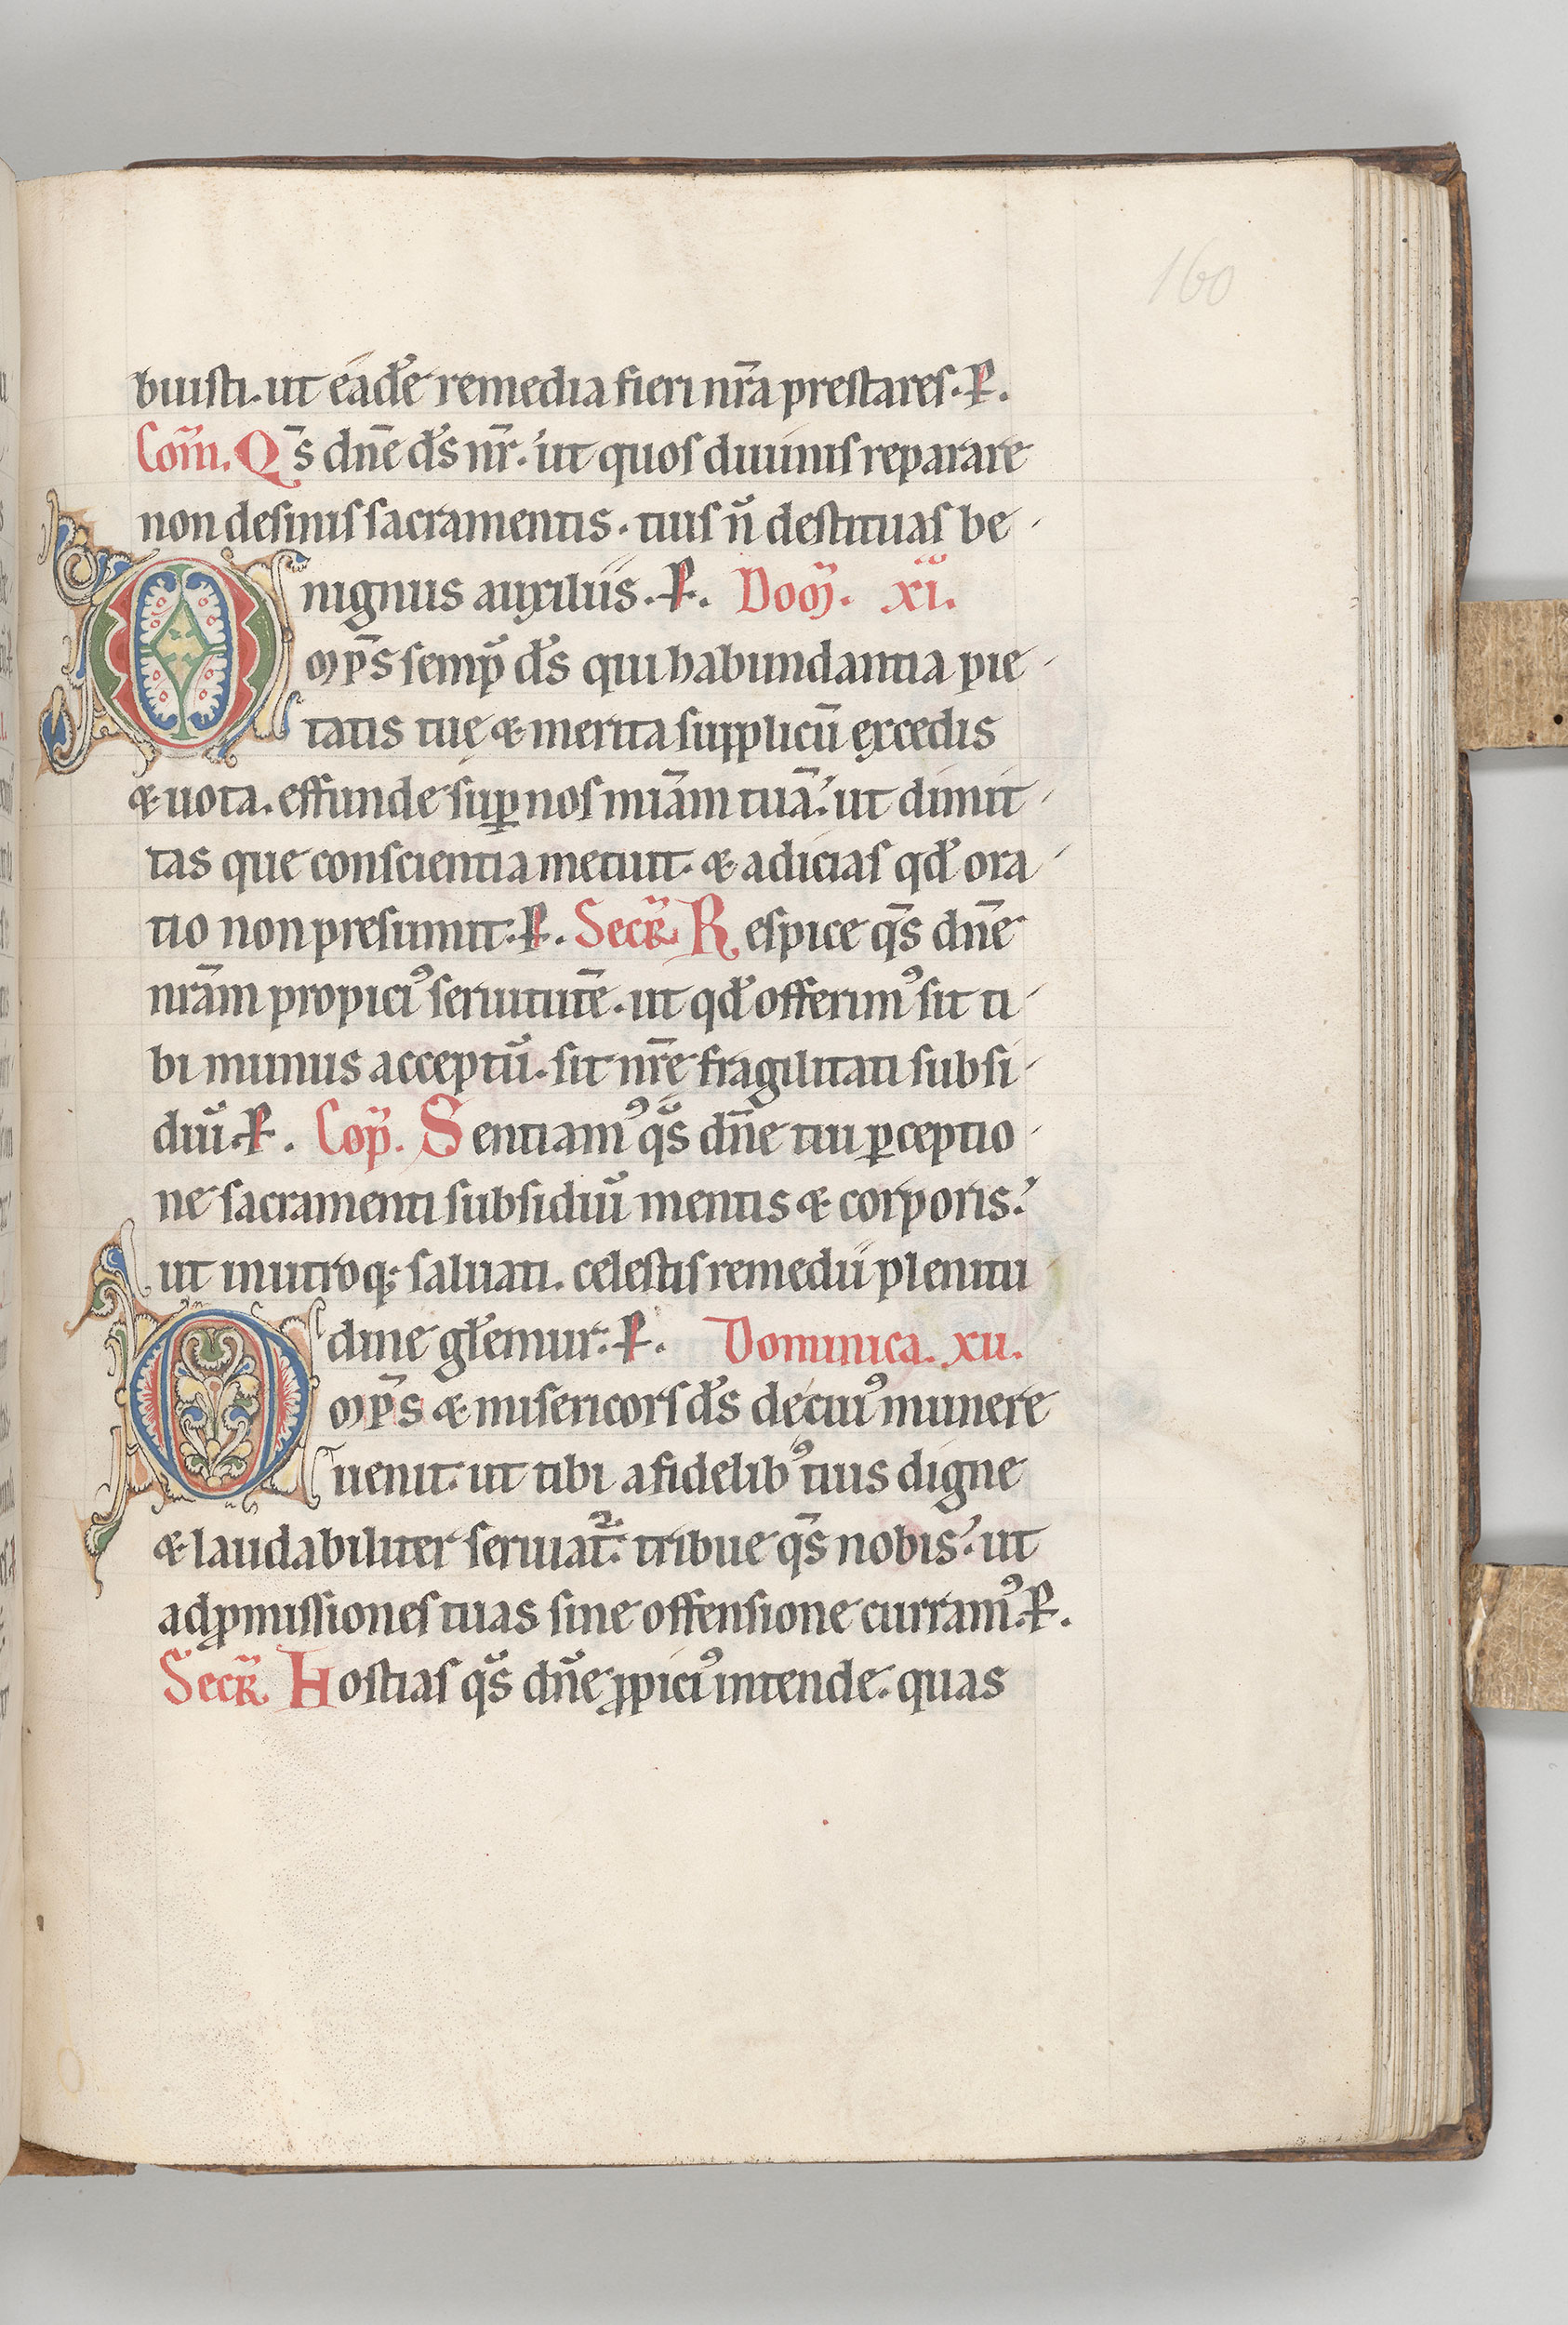 160
buisti. ut eadē remedia fieri nrā prestares. P.
Com̄. Qs̄ dnē ds̄ nr̄. ut quos diuinis reparare
non desinis sacramentis. tuis n̄ destituas be
nignus auxiliis. P. Dom̄. xi.
Omps̄ semp̄ ds̄ qui habundantia pie
tatis tuę & merita supplicū excedis
& uota. effunde suꝑ nos miām tuā. ut dimit
tas que conscientia metuit. & adicias qd̄ ora
tio non presumit. P. Secr̄ Respice qs̄ dnē
nrām propiciꝰ seruitutē. ut qd̄ offerimꝰ sit ti
bi munus acceptū. sit nrę̄ fragilitati subsi
diū. P. Cop̄. Sentiamꝰ qs̄ dnē tui ꝑceptio
ne sacramenti subsidiū mentis & corporis.
ut inutroq; saluati. celestis remedii plenitu
dine gl̄emur. P. Dominica. xii.
Omps̄ & misericors ds̄ de cuiꝰ munere
uenit. ut tibi a fidelibꝰ tuis digne
& laudabiliter seruiat᷑. tribue qs̄ nobis. ut
ad ꝓmissiones tuas sine offensione curramꝰ. P.
Secr̄ Hostias qs̄ dnē ꝓpiciꝰ intende. quas